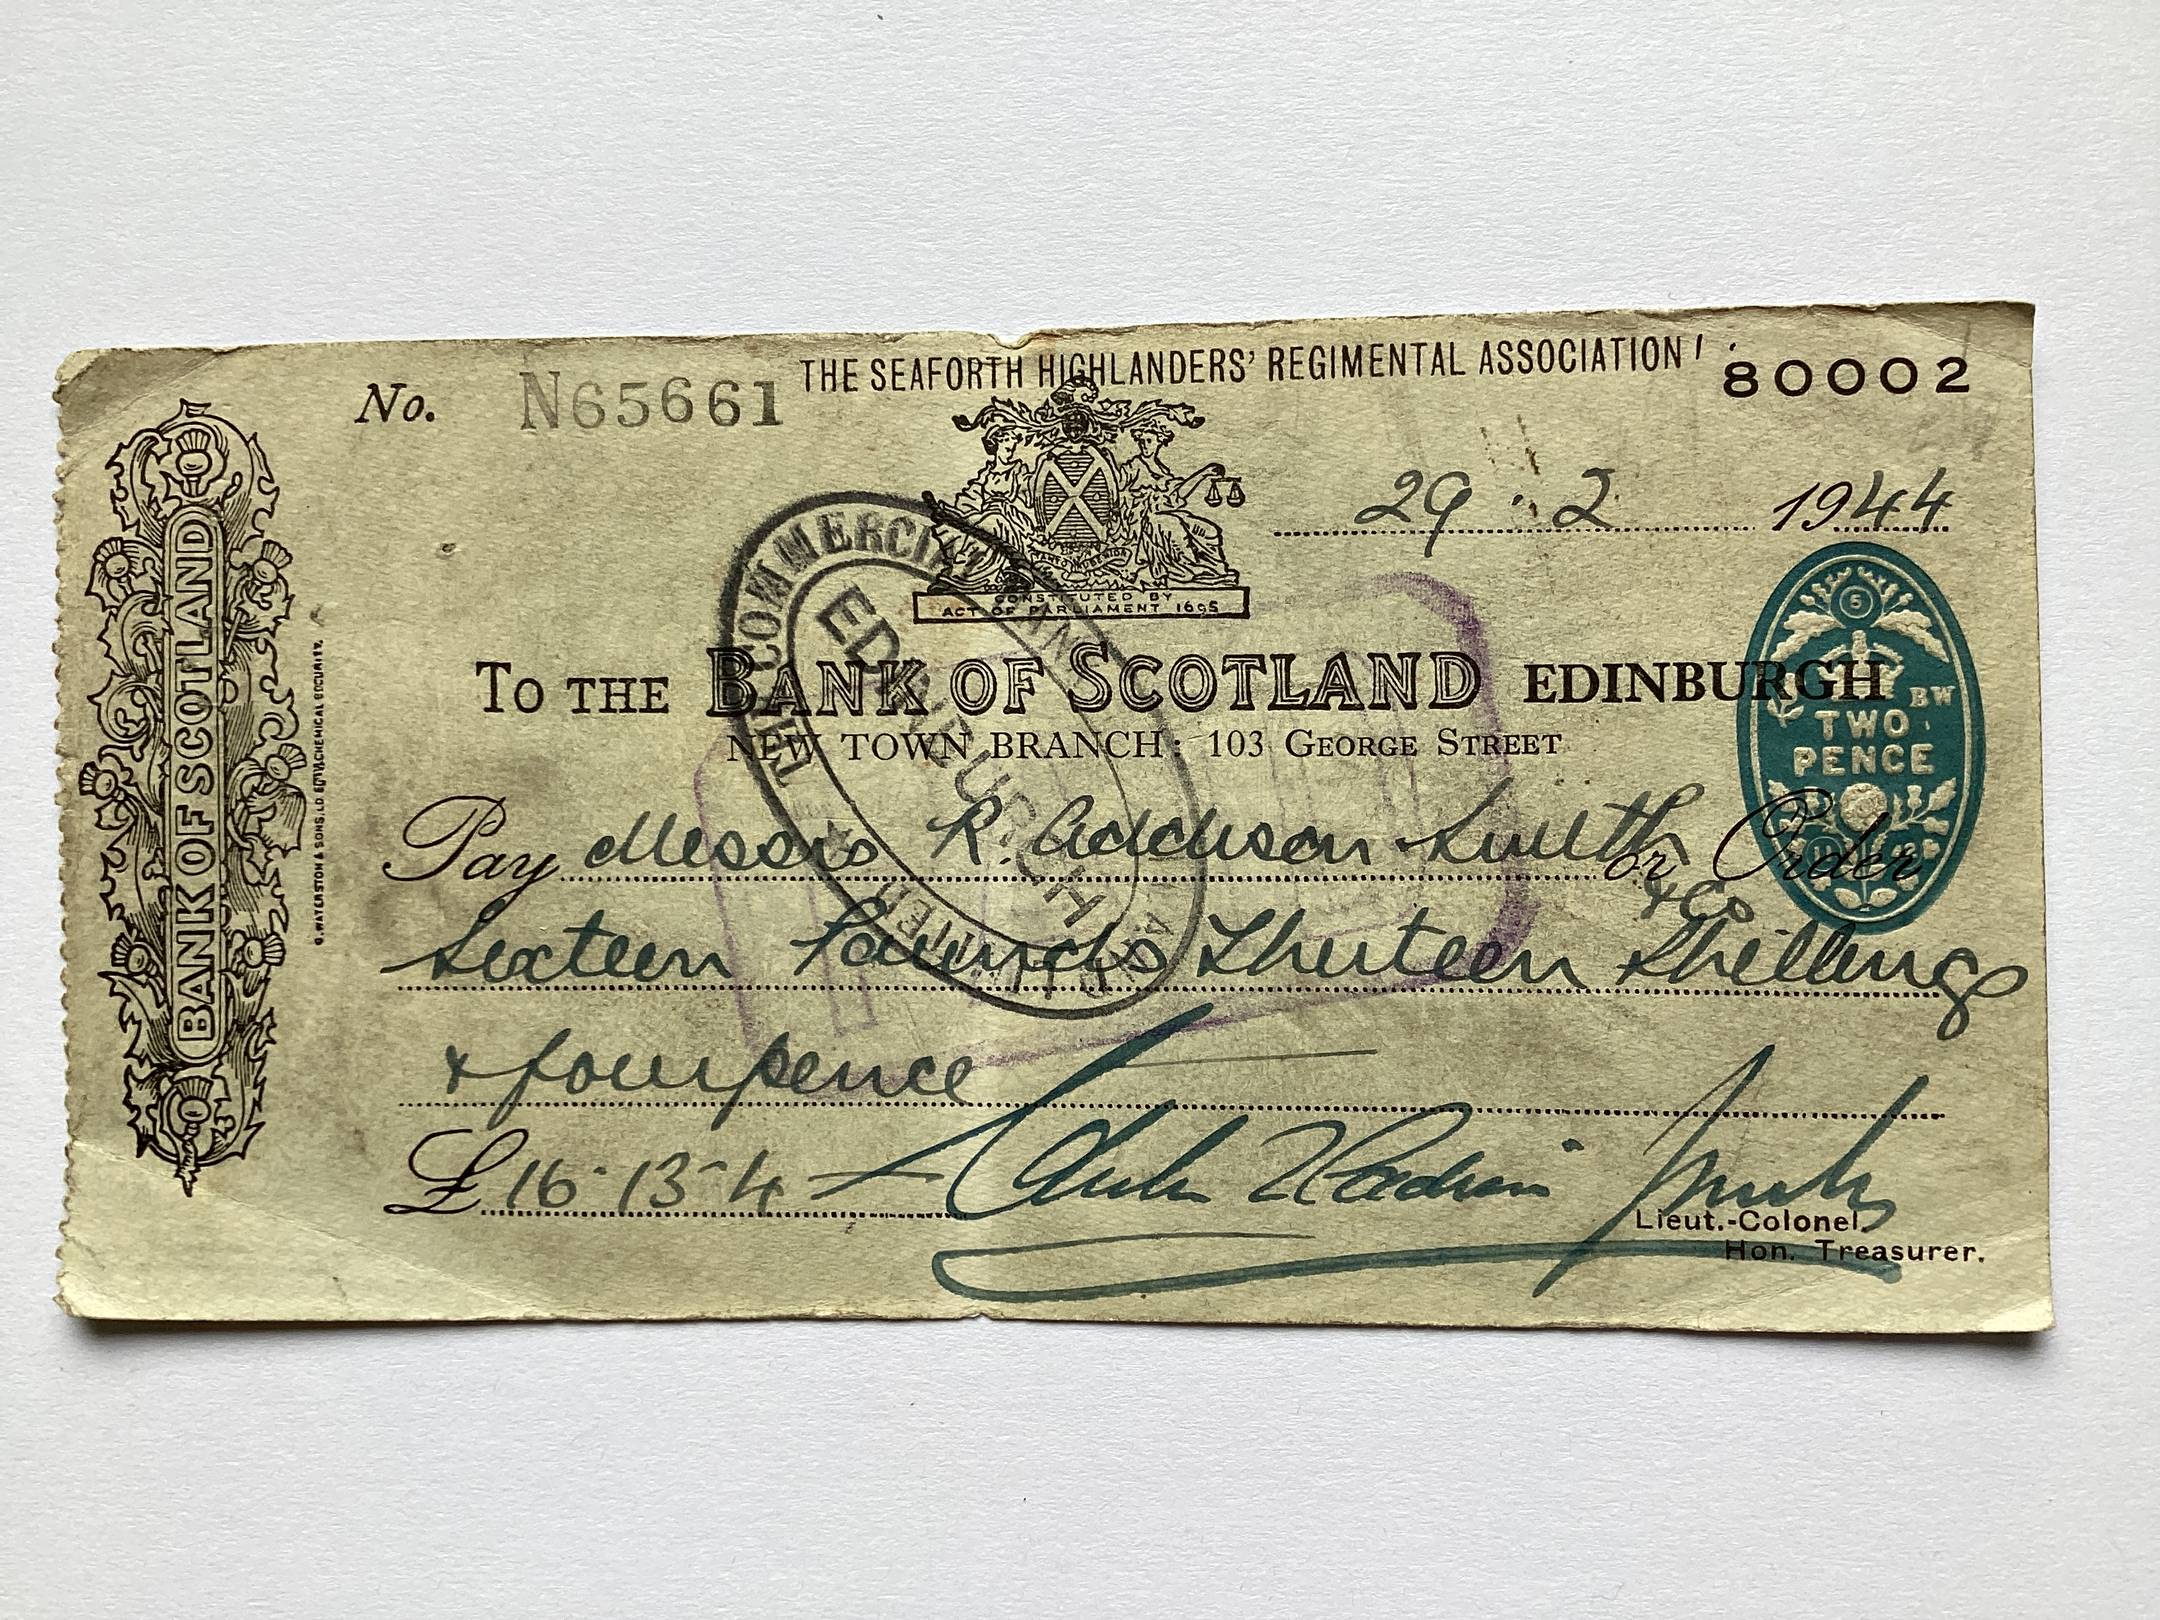 THE SEAFORTH HIGHLANDERS' REGIMENTAL ASSOCIATION
No. N65661
80002
29 . 2 1944
CONSTITUTED BY
ACT OF PARLIAMENT 1695
TO THE BANK OF SCOTLAND EDINBURGH
NEW TOWN BRANCH: 103 GEORGE STREET
BW
TWO
PENCE
5
Pay Messrs R. Addison Smith or Order
& Co
Sixteen Pounds Thirteen Shillings
& fourpence
£16-13-4
Lieut.-Colonel.
Hon. Treasurer.
BANK OF SCOTLAND
G. WATERSTON & SONS, LD. EDINR. CHEMICAL SECURITY.
THE COMMERCIAL BANK
EDINBURGH